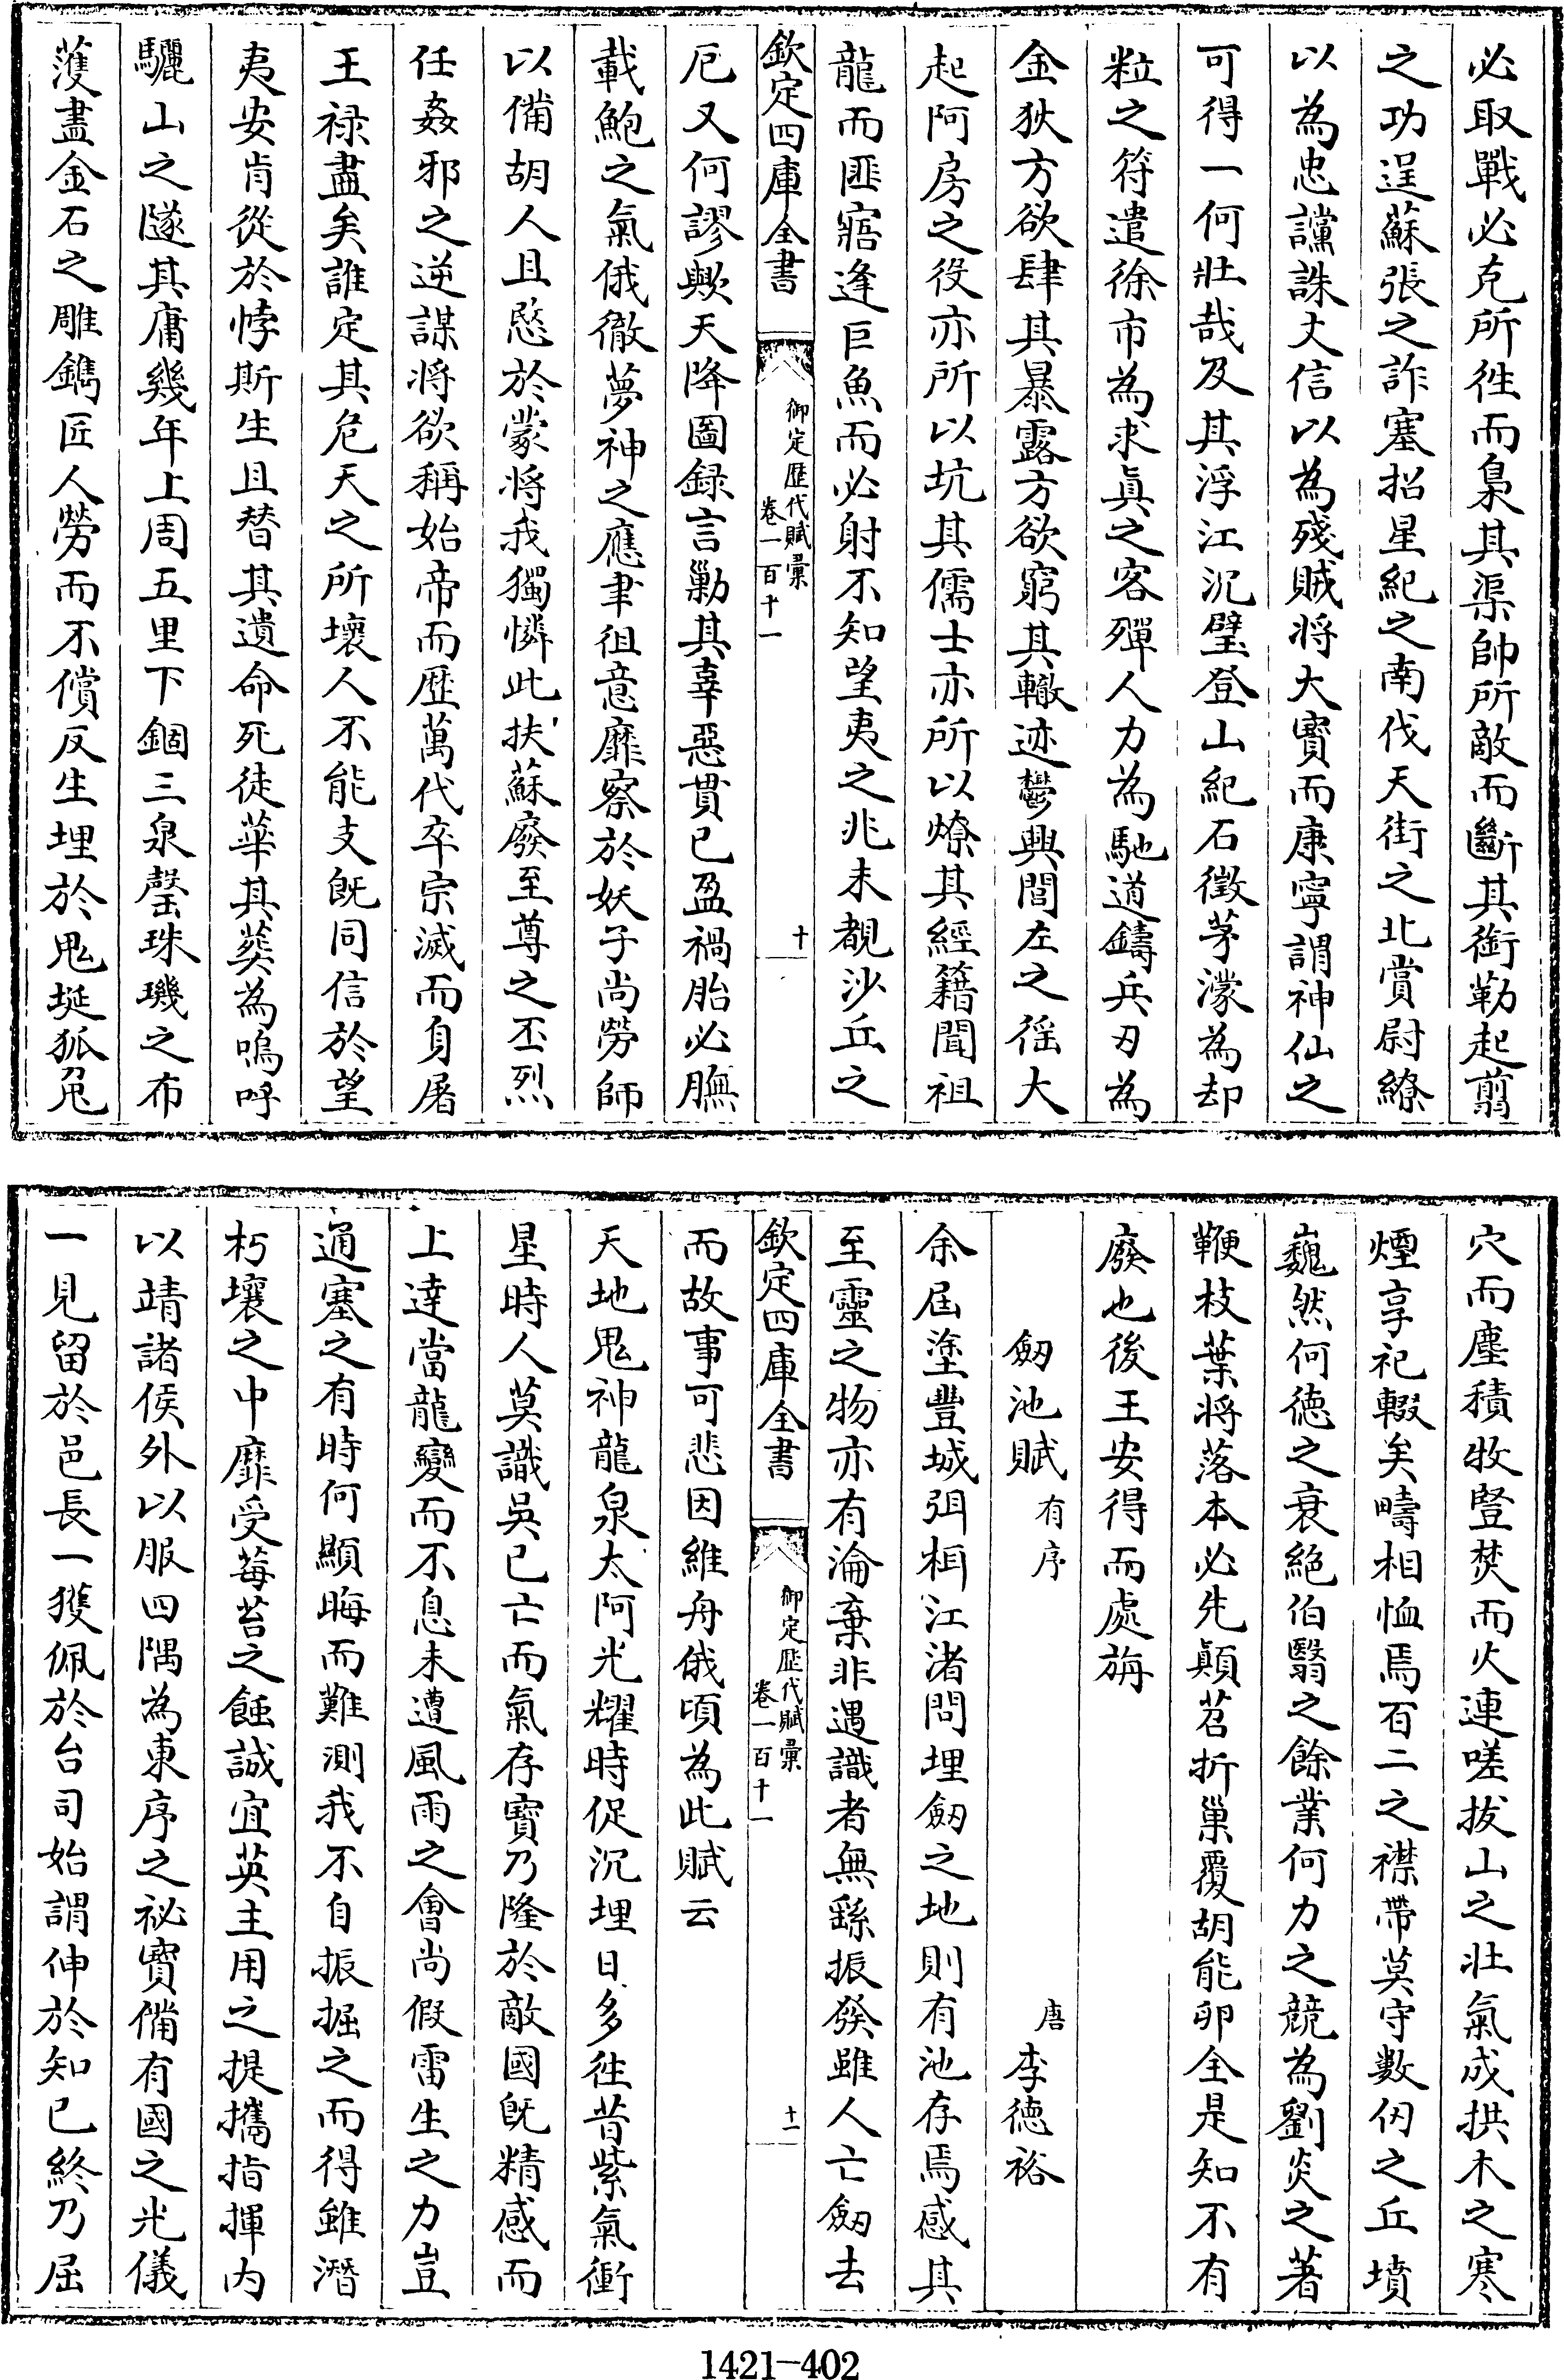 必取戰必克所徃而梟其渠帥所敵而斷其銜勒起翦
之功逞蘇張之詐塞招星紀之南伐天街之北賞尉繚
以為忠讜誅文信以為殘賊将大寳而康寧謂神仙之
可得一何壯哉及其浮江沉璧登山紀石徵茅濛為却
粒之符遣徐市為求眞之客殫人力為馳道鑄兵刃為
金狄方欲肆其暴露方欲窮其轍迹鬱興閭左之徭大
起阿房之役亦所以坑其儒士亦所以燎其經籍聞祖
龍而匪寤逢巨魚而必射不知望夷之兆未覩沙丘之
欽定四庫全書
御定歴代賦彙
卷一百十一
十
厄又何謬歟天降圖録言勦其辜惡貫已盈禍胎必膴
載鮑之氣俄徹夢神之應聿徂意靡察於妖子尚勞師
以備胡人且愍於蒙将我獨憐此扶蘇廢至尊之丕烈
任姦邪之逆謀将欲稱始帝而歴萬代卒宗滅而身屠
王禄盡矣誰定其危天之所壞人不能支旣同信於望
夷安肯從於悖斯生且替其遺命死徒華其葬為嗚呼
驪山之隧其庸幾年上周五里下錮三泉罄珠璣之布
濩盡金石之雕鐫匠人勞而不償反生埋於鬼埏狐兎
穴而塵積牧豎焚而火連嗟拔山之壯氣成拱木之寒
煙享祀輟矣疇相恤焉百二之襟帶莫守數仞之丘墳
巍然何徳之衰絶伯翳之餘業何力之競為劉炎之著
鞭枝葉将落本必先顚苕折巢覆胡能卵全是知不有
廢也後王安得而處旃
劒池賦 有序 唐 李徳裕
余屆塗豐城弭枻江渚問埋劒之地則有池存焉感其
至靈之物亦有淪棄非遇識者無繇振發雖人亡劒去
欽定四庫全書
御定歴代賦彙
卷一百十一
十一
而故事可悲因維舟俄頃為此賦云
天地鬼神龍泉太阿光耀時促沉埋日多徃昔紫氣衝
星時人莫識吳已亡而氣存寳乃隆於敵國旣精感而
上達當龍變而不息未遭風雨之會尚假雷生之力豈
通塞之有時何顯晦而難測我不自振掘之而得雖潛
朽壤之中靡受莓苔之蝕誠宜英主用之提攜指揮内
以靖諸侯外以服四隅為東序之祕寳備有國之光儀
一見留於邑長一獲佩於台司始謂伸於知已終乃屈
1421-402